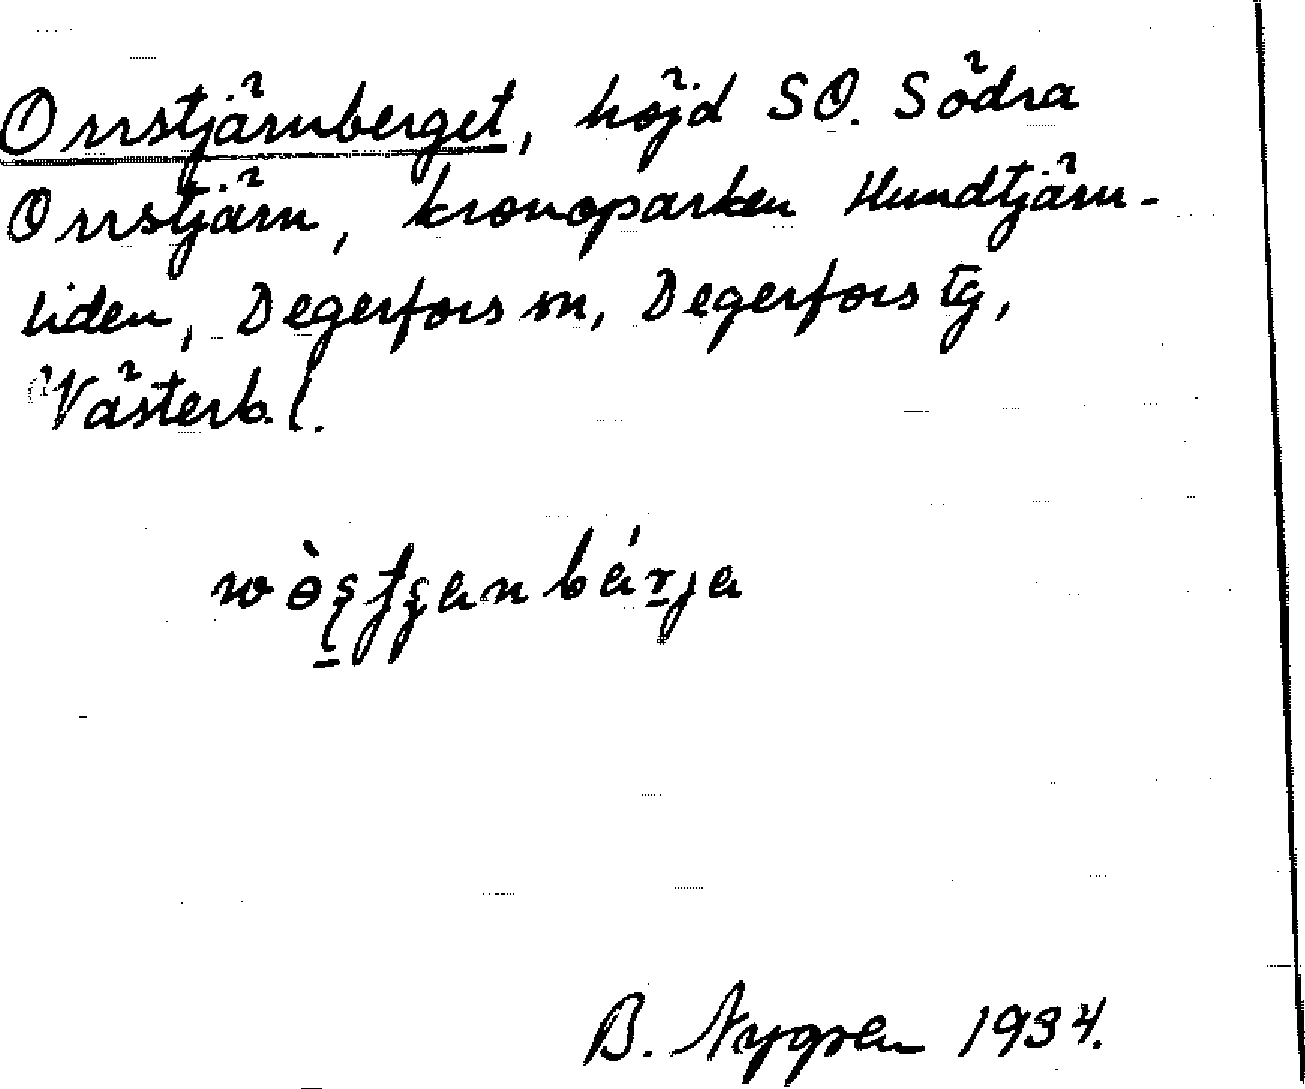 Orrstjärnberget, höjd SO. Södra
Orrstjärn, kronoparken Hundtjärn-
liden, Degerfors sn, Degerfors tg,
Västerb. l.
B. Nygren 1934.